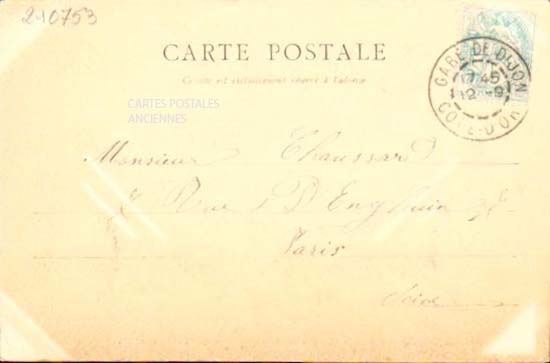 240753
CARTE POSTALE
Ce côté est exclusivement réservé à l'adresse
CARTES POSTALES
ANCIENNES
GARE DE DIJON
17 45
12 -9
COTE-D'OR
Monsieur Chaussard
Rue D'Enghuin
Paris
Seine